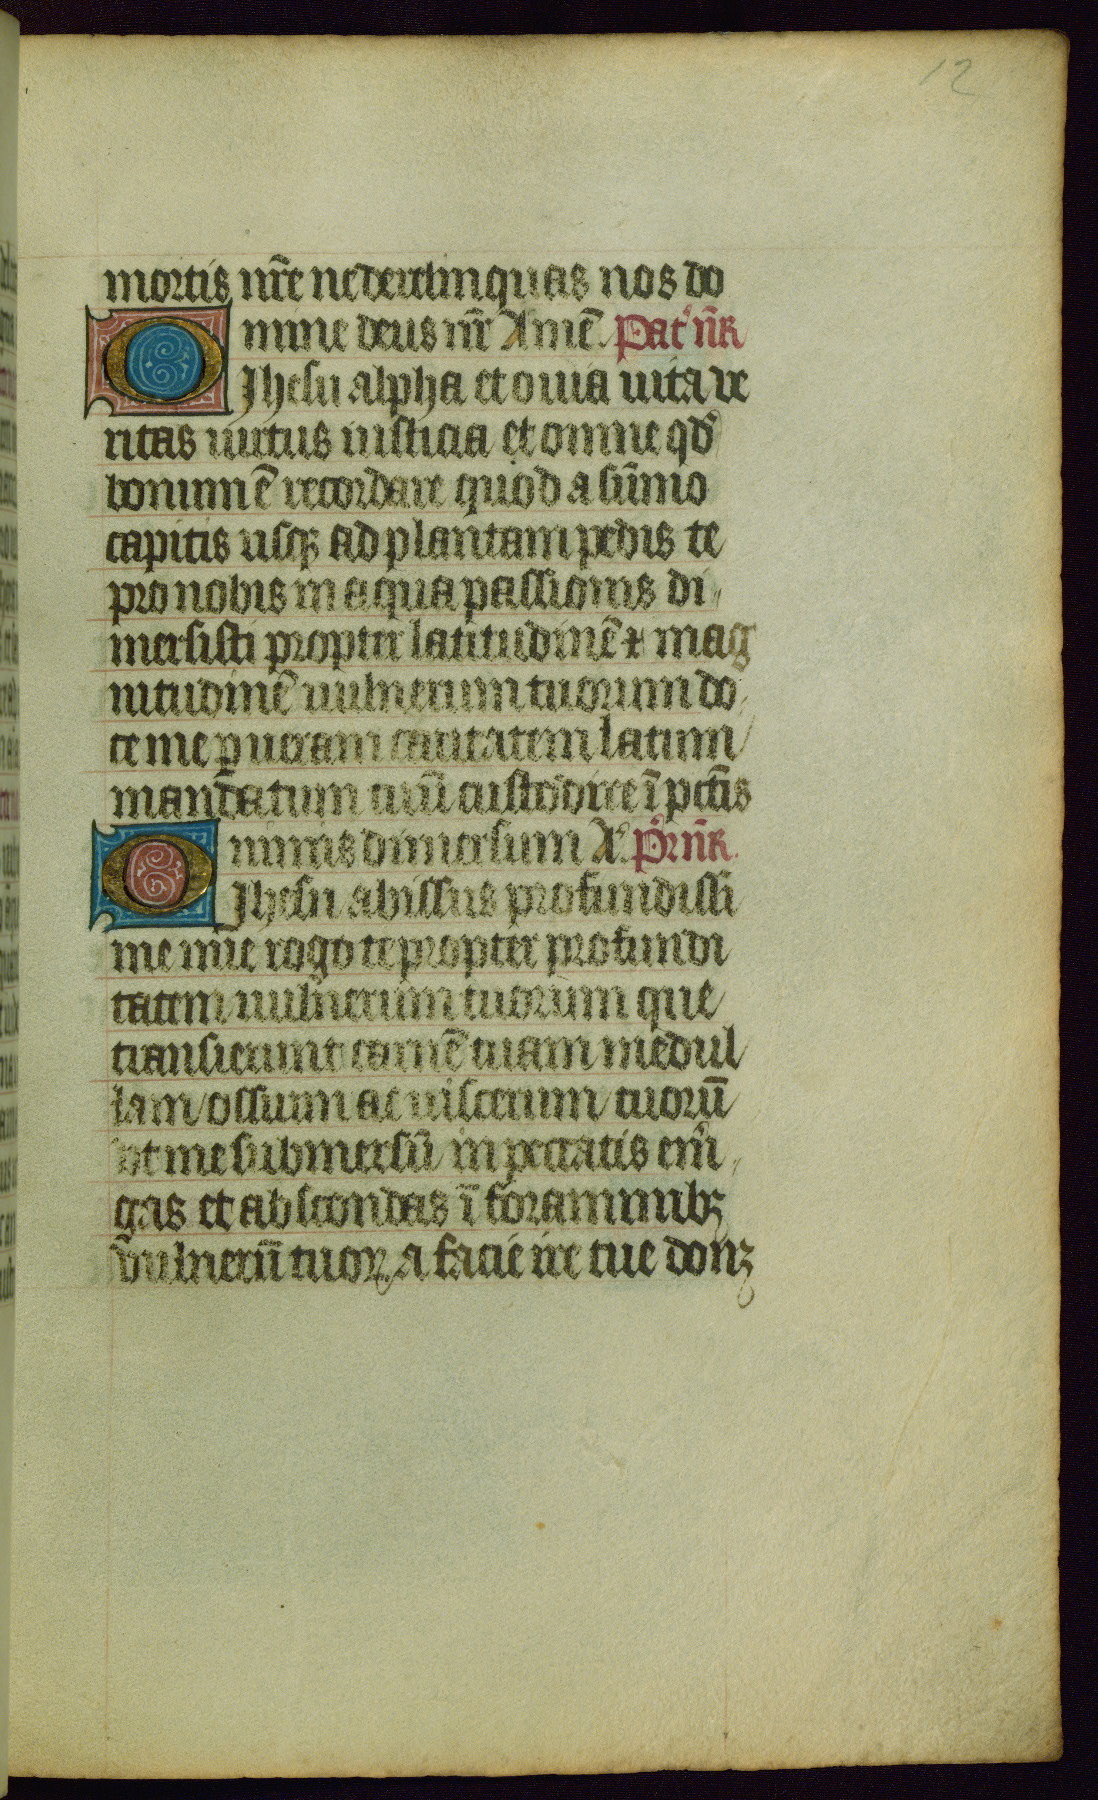 12
mortis nr̄e ne derelinquas nos do
mine deus nr̄ Amē. Pat̄ nr̄
O Jhesu alpha et o uia uita ve
ritas uirtus iusticia et omne qd̄
bonum ē recordare quod a sūmo
capitis usqꝫ ad plantam pedis te
pro nobis in aqua passionis di
mersisti propter latitudinē ⁊ mag
nitudinē uulnerum tuorum do
ce me ꝑ ueram caritatem latum
mandatum tuū custodire ī pctīs
nimis dimersum A. Pr̄ nr̄
O Jhesu abissus profundissi
me mīe rogo te propter profundi
tatem uulnerum tuorum que
transierunt carnē tuam medul
lam ossuum ac uiscerum tuorū
ut me submersū in peccatis em̄i
gas et abscondas ī foraminibꝫ
vulnerū tuoꝝ a facie ire tue donꝫ